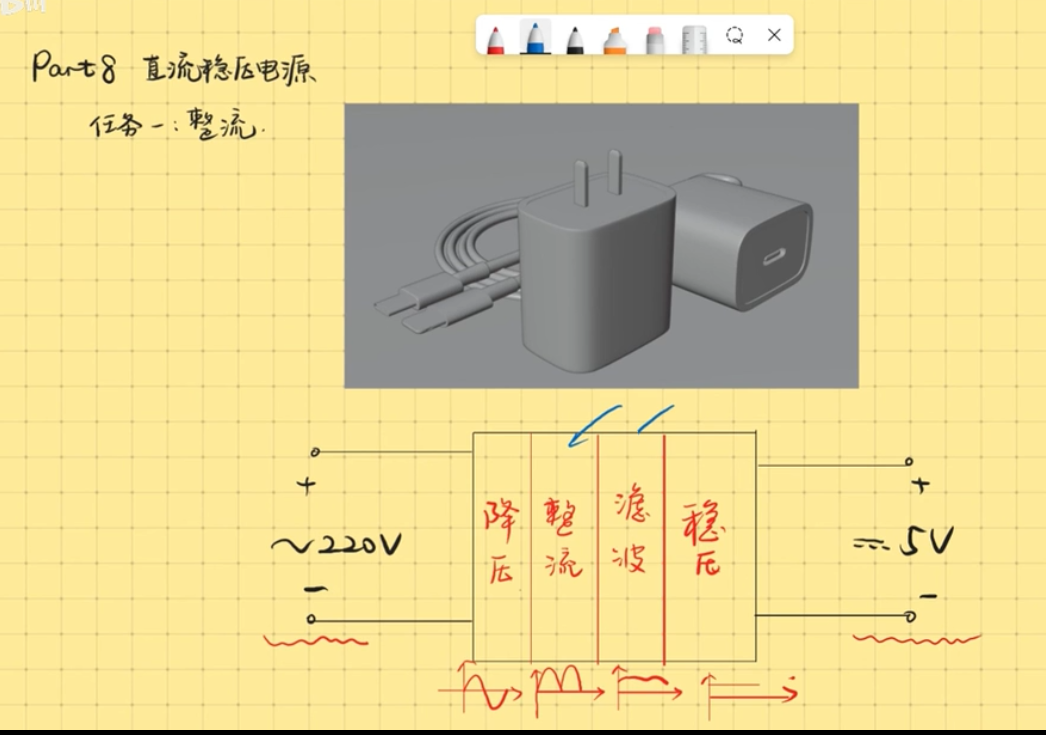 Part 8 直流稳压电源
任务一:整流.
+
~220V
-
降压
整流
滤波
稳压
+
⎓ 5V
-